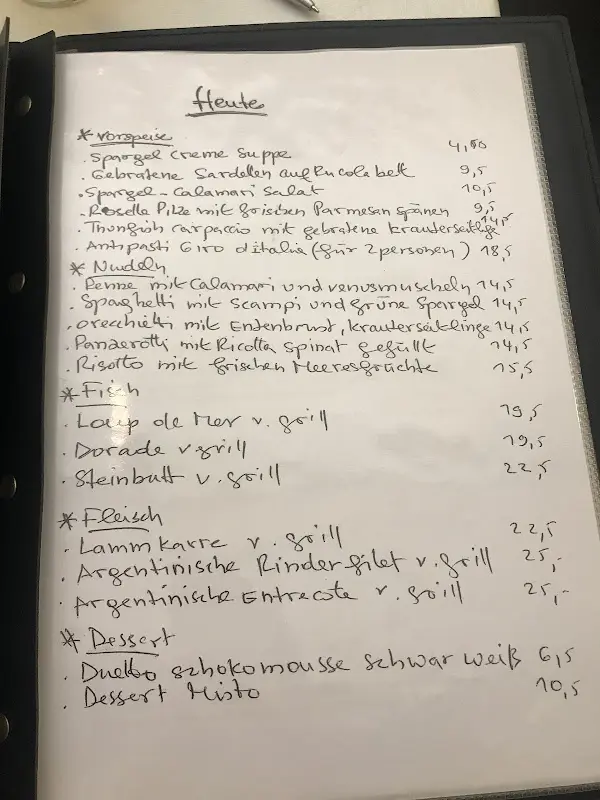 Heute
* Vorspeise
. Spargel Creme Suppe 4,50
. Gebratene Sardellen auf Rucola bett 9,5
. Spargel - Calamari Salat 10,5
. Roselle Pilze mit frischen Parmesan spänen 9,5
. Thunfish carpaccio mit gebratene kräuterseitlige 14,5
. Antipasti Giro d'italia (für 2 personen) 18,5
* Nudeln
. Penne mit Calamari und venusmuscheln 14,5
. Spaghetti mit Scampi und grüne Spargel 14,5
. Orecchietti mit Entenbrust, kräuterseitlinge 14,5
. Panzerotti mit Ricotta Spinat gefüllt 14,5
. Risotto mit frischen Meeresfrüchte 15,5
* Fisch
. Loup de Mer v. grill 19,5
. Dorade v grill 19,5
. Steinbutt v. grill 22,5
* Fleisch
. Lammkarre v. grill 22,5
. Argentinische Rinderfilet v. grill 25,-
. Argentinische Entrecote v. grill 25,-
* Dessert
. schokomousse schwar weiß 6,5
. Dessert Misto 10,5